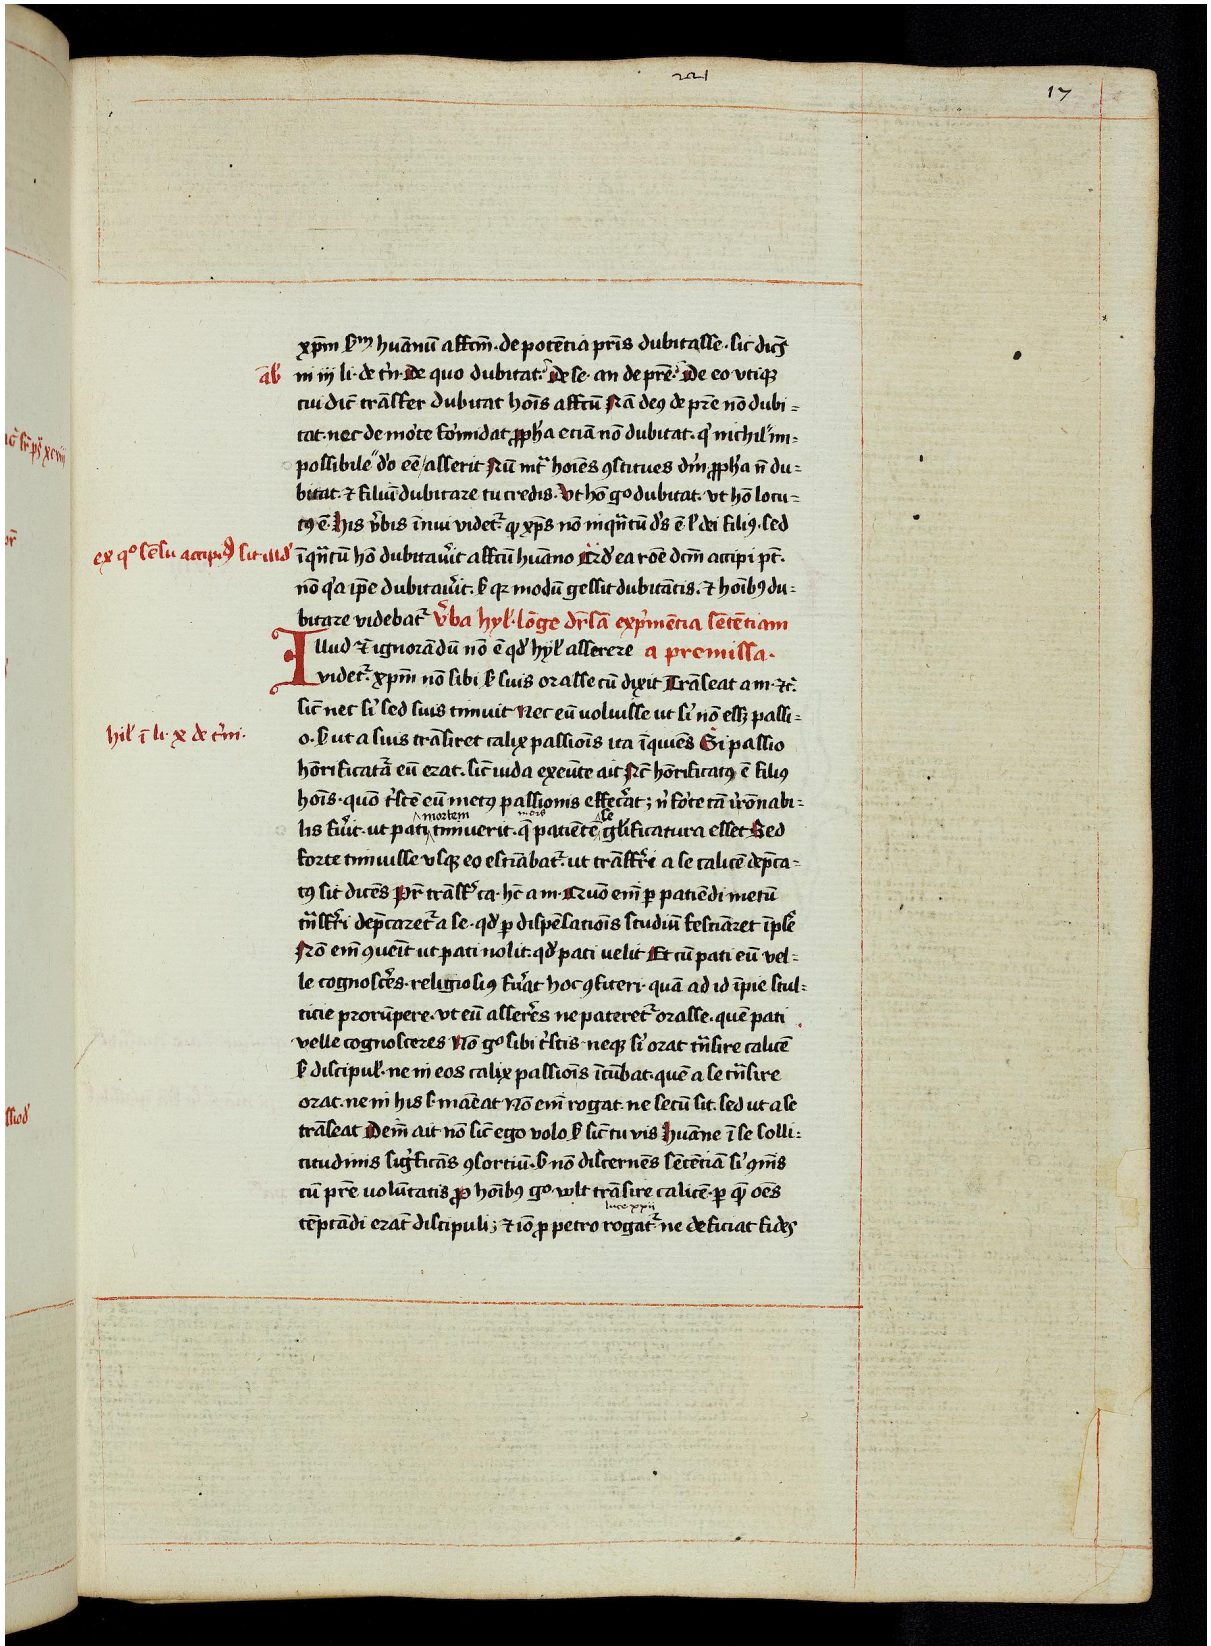 17
xp̄m ſꝫm huānū affcm̄. de potētia pris dubitaſſe. ſic dicēs
ab̄
in iij li. de tri̅. De quo dubitat. De ſe. an de pr̄e. De eo vtiqꝫ
cui dic̄ trāſfer dubitat hoīs affcū Nā deꝰ de pr̄e nō dubi=
tat. nec de morte formidat ꝓph̄a etiā nō dubitat. qꝛ nichil im=
poſſibile do̅ eē aſſerit Nū int̄ hoīes ꝯſtitues dm̄. ꝓph̄a n̄ du=
bitat. ⁊ filiū dubitare tu credis. Vt hō gͦ dubitat. vt hō locu=
tꝰ ē. His v̄bis īnui videt᷑ qꝙ xp̄s nō inqn̄tū ds̄ ē ł dei filiꝰ. ſed
ex qͦ ſēſu accipiēd ſit illd̄
īqn̄tū hō dubitau̅it affcū huāno Qd̄ ea rōe dcm̄ accipi pt̄.
nō qꝛ ip̄e dubitau̅it. ſꝫ qꝛ modū geſſit dubitātis. ⁊ hoībꝰ du=
bitare videbat᷑ v̄ba hyl̄. lōge dr̄ſā exp̄mētia ſētētiam
Illud ⁊ ignorādū nō ē qd̄ hyl̄ aſſerere a premiſſa.
videt᷑. xp̄m nō ſibi ſꝫ ſuis oraſſe cū dixit Trāſeat a m. ⁊c̄.
ſic̄ nec ſi ſed ſuis timuit Nec eū uoluiſſe ut ſi nō eſſꝫ paſſi=
hil̄ ī li. x de tr̄ni.
o. ſꝫ ut a ſuis trāſiret calix paſſiōis ita īquiēs Si paſſio
hōrificatā eū erat. ſic̄ iuda exeūte ait Nc̄ hōrificatꝰ ē filiꝰ
hoīs. quō triſtē eū metꝰ paſſionis effec̄at; n̄ forte tā irōnabi=
mortem mors ſe
lis fu̅it. ut pati timuerit. q̄ patiētē gl̄ificatura eſſet Sed
forte timuiſſe vſqꝫ eo eſtiābat᷑. ut trāſfr̄i a ſe calicē dep̄ca=
tꝰ ſit dicēs Pr̄ trāſfer ca. hc̄ a m. Quō em̄ ꝑ patiēdi metū
tn̄ſfr̄i dep̄caret᷑ a ſe. qd̄ ꝑ diſpēſatiōis ſtudiū feſtiāret īplē
Nō em̄ ꝯueīt ut pati nolit. qd̄ pati velit Et cū pati eū vel=
le cognoſc̄es. religioſiꝰ fu̅at hoc ꝯfiteri. quā ad id īpie ſtul=
ticie prorūpere. vt eū aſſer̄es ne pateret᷑ oraſſe. quē pati
velle cognoſceres Nō gͦ ſibi tr̄iſtis. neqꝫ ſi orat tn̄ſire calicē
ſꝫ diſcipul̄. ne in eos calix paſſiōis īcūbat. quē a ſe tn̄ſire
orat. ne in his ſ. māeat Nō em̄ rogat. ne ſecū ſit. ſed ut a ſe
trāſeat Dem̄ ait nō ſic̄ ego volo ſꝫ ſic̄ tu vis Huāne ī ſe ſolli=
citudinis ſigīficās ꝯſortiū. ſꝫ nō diſcernēs ſētētiā ſi ꝯmīs
cū pr̄e uolūtatis Pro hoībꝰ gͦ vult trāſire calicē. ꝑ quē oēs
luce xxii
tēptādi erāt diſcipuli; ⁊ iō ꝑ petro rogat᷑ ne deficiat fides